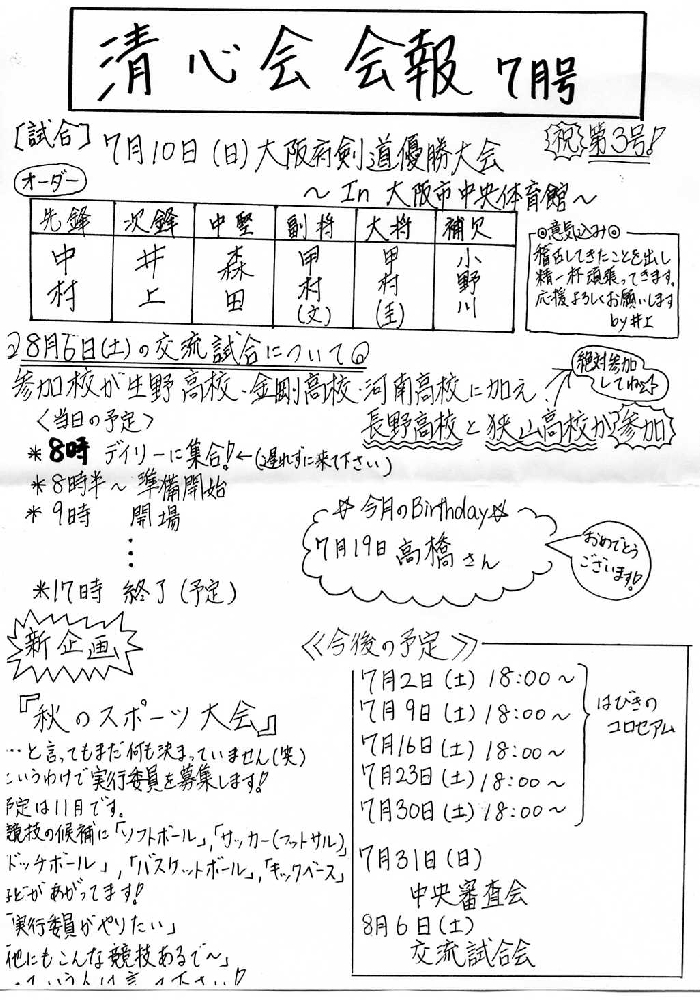 清心会 会報 7月号
[試合] 7月10日(日)大阪府剣道優勝大会
祝 第3号!
〜In 大阪市中央体育館〜
オーダー
先鋒 次鋒 中堅 副将 大将 補欠
中村 井上 森田 甲村(文) 甲村(圭) 小野川
◎意気込み◎
稽古してきたことを出し
精一杯頑張ってきます。
応援よろしくお願いします
by井上
8月6日(土)の交流試合について
参加校が生野高校・金剛高校・河南高校に加え
長野高校と狭山高校が参加
絶対参加
してね
<当日の予定>
*8時 デイリーに集合!←(遅れずに来て下さい)
*8時半〜 準備開始
*9時 開場
⋮
*17時 終了(予定)
☆今月のBirthday☆
7月19日 高橋さん
おめでとう
ございます!
新企画
『秋のスポーツ大会』
…と言ってもまだ何も決まっていません(笑)
いうわけで実行委員を募集します!
予定は11月です。
競技の候補に「ソフトボール」,「サッカー(フットサル)」
ドッチボール」,「バスケットボール」,「キックベース」
などがあがってます!
「実行委員がやりたい」
他にもこんな競技あるで〜」
≪今後の予定≫
7月2日(土)18:00〜
7月9日(土)18:00〜
7月16日(土)18:00〜
7月23日(土)18:00〜
7月30日(土)18:00〜
はびきの
コロセアム
7月31日(日)
中央審査会
8月6日(土)
交流試合会